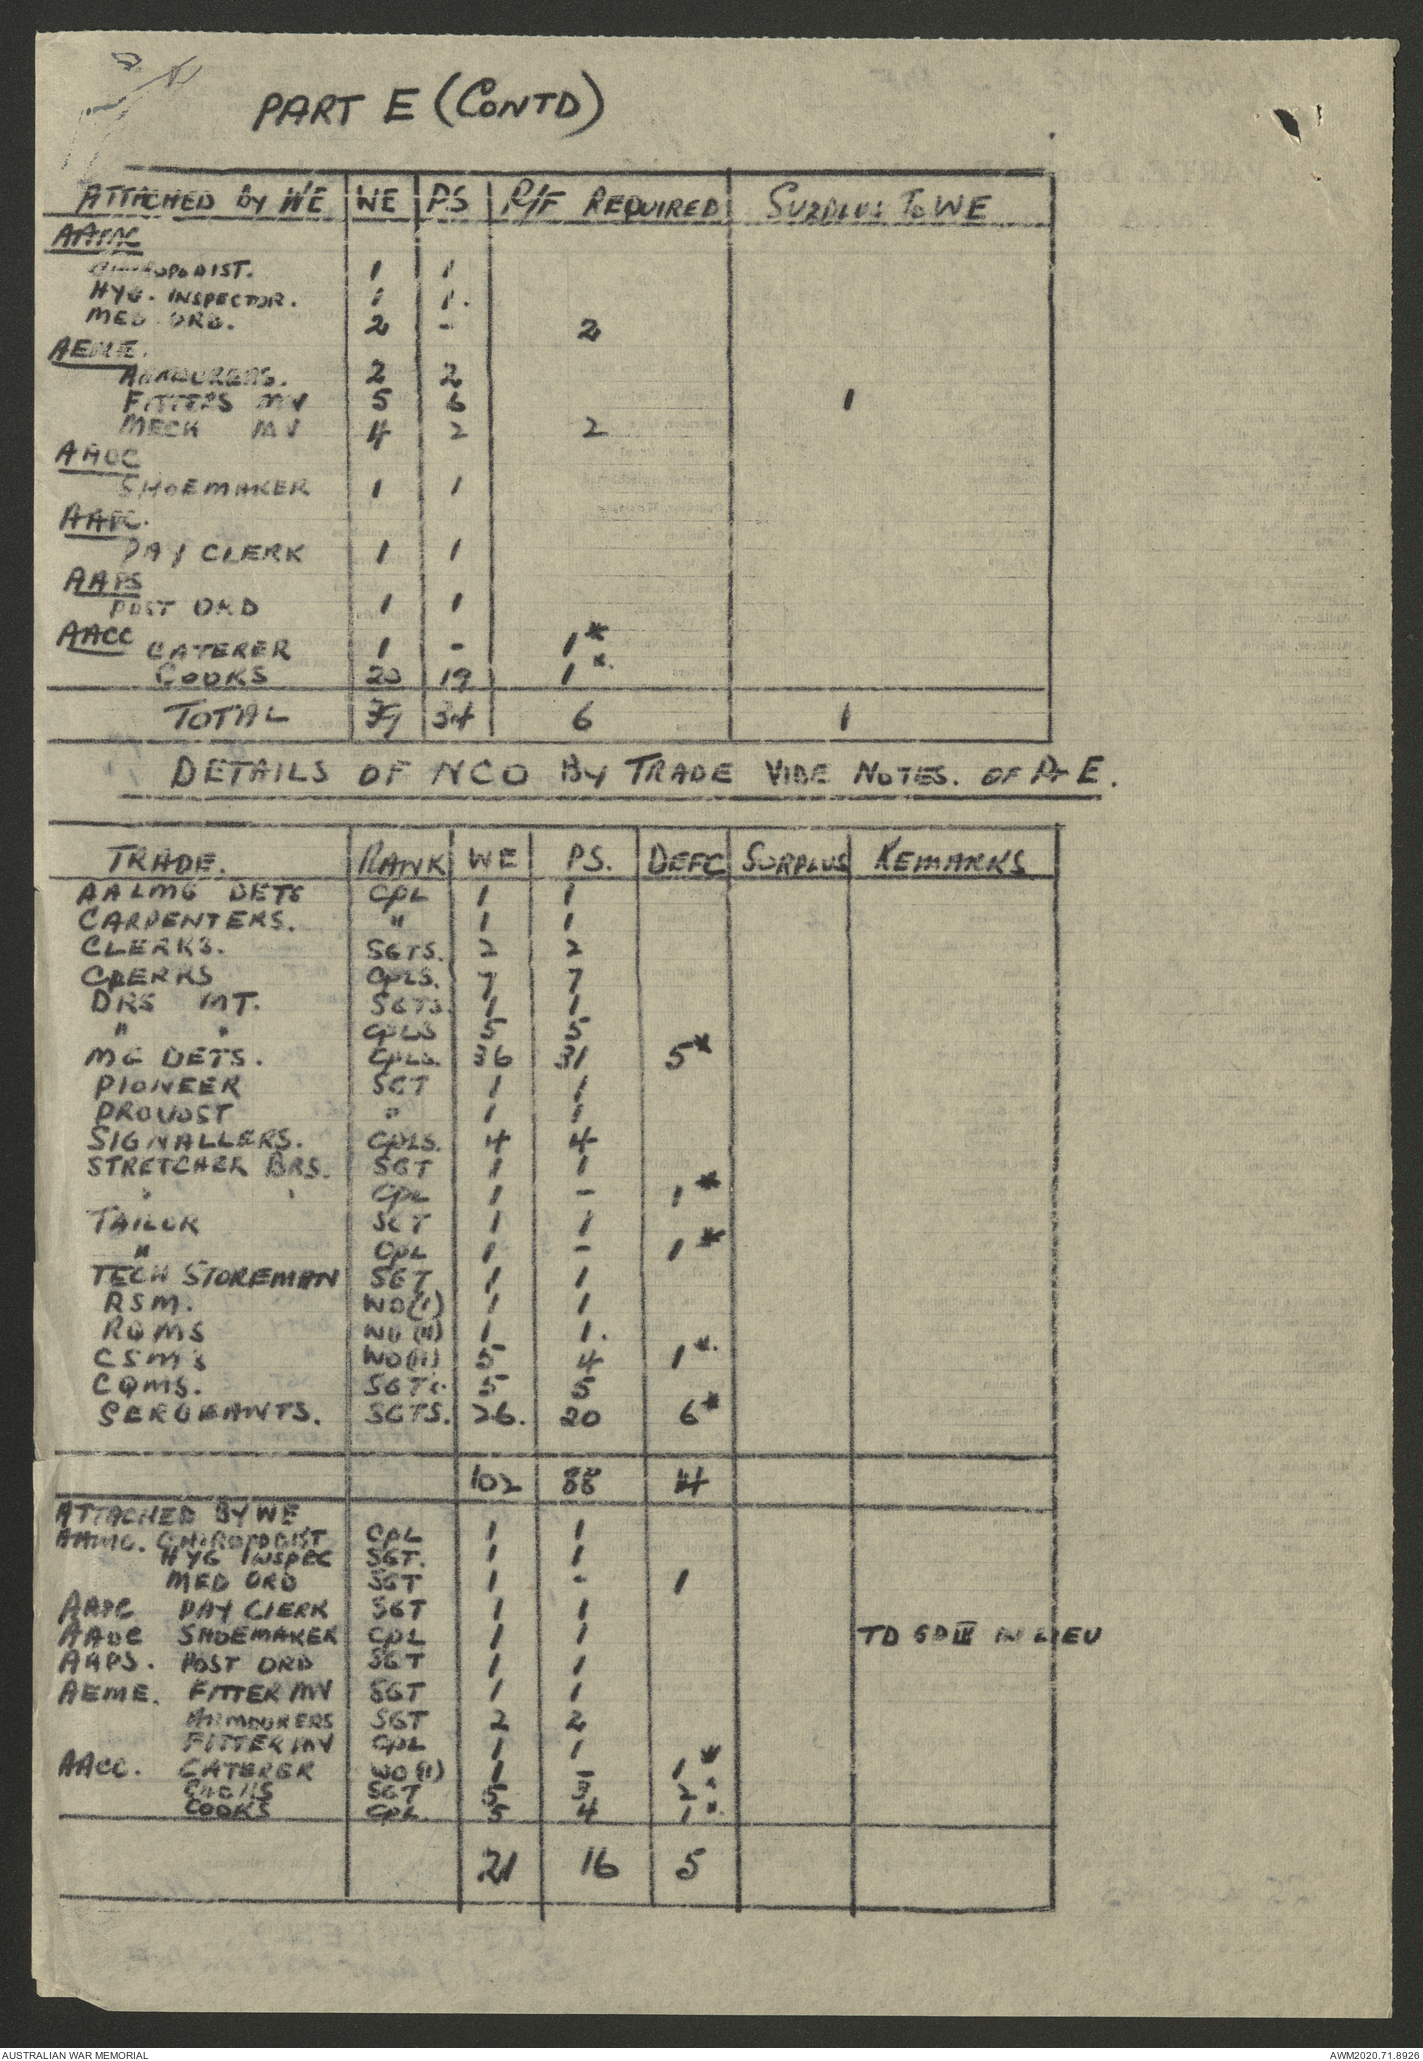 PART E (CONTD)
ATTACHED BY WE WE PS R/F REQUIRED SURPLUS TO WE
AAMC
CHIROPODIST. 1 1
HYG. INSPECTOR. 1 1.
MED ORD. 2 - 2
AEME.
ARMOURERS. 2 2
FITTERS MV 5 6 1
MECH MV 4 2 2
AAOC
SHOEMAKER 1 1
AAPC.
PAY CLERK 1 1
AAPS
POST ORD 1 1
AACC CATERER 1 - 1*
COOKS 20 19 1*.
TOTAL 39 34 6 1
DETAILS OF NCO BY TRADE VIDE NOTES. OF Pt E.
TRADE. RANK WE PS. DEFC SURPLUS REMARKS
AALMG DETS CPL 1 1
CARPENTERS. " 1 1
CLERKS. SGTS. 2 2
CLERKS CPLS. 7 7
DRS MT. SGTS. 1 1
" " CPLS 5 5
MG DETS. CPLS. 36 31 5*
PIONEER SGT 1 1
PROVOST " 1 1
SIGNALLERS. CPLS. 4 4
STRETCHER BRS. SGT 1 1
" " CPL 1 - 1*
TAILOR SGT 1 1
" CPL 1 - 1*
TECH STOREMAN SGT 1 1
RSM. WO(I) 1 1
RQMS WO(II) 1 1.
CSMS WO(II) 5 4 1*.
CQMS. SGTS. 5 5
SERGEANTS. SGTS. 26. 20 6*
102 88 14
ATTACHED BY WE
AAMC. CHIROPODIST CPL 1 1
HYG INSPEC SGT. 1 1
MED ORD SGT 1 - 1
AAPC PAY CLERK SGT 1 1
AAOC SHOEMAKER CPL 1 1 TD GD III IN LIEU
AAPS. POST ORD SGT 1 1
AEME. FITTER MV SGT 1 1
ARMOURERS SGT 2 2
FITTER MV CPL 1 1
AACC. CATERER WO(II) 1 - 1*
COOKS SGT 5 3 2*
COOKS CPL. 5 4 1*.
21 16 5
AUSTRALIAN WAR MEMORIAL AWM2020.71.8926